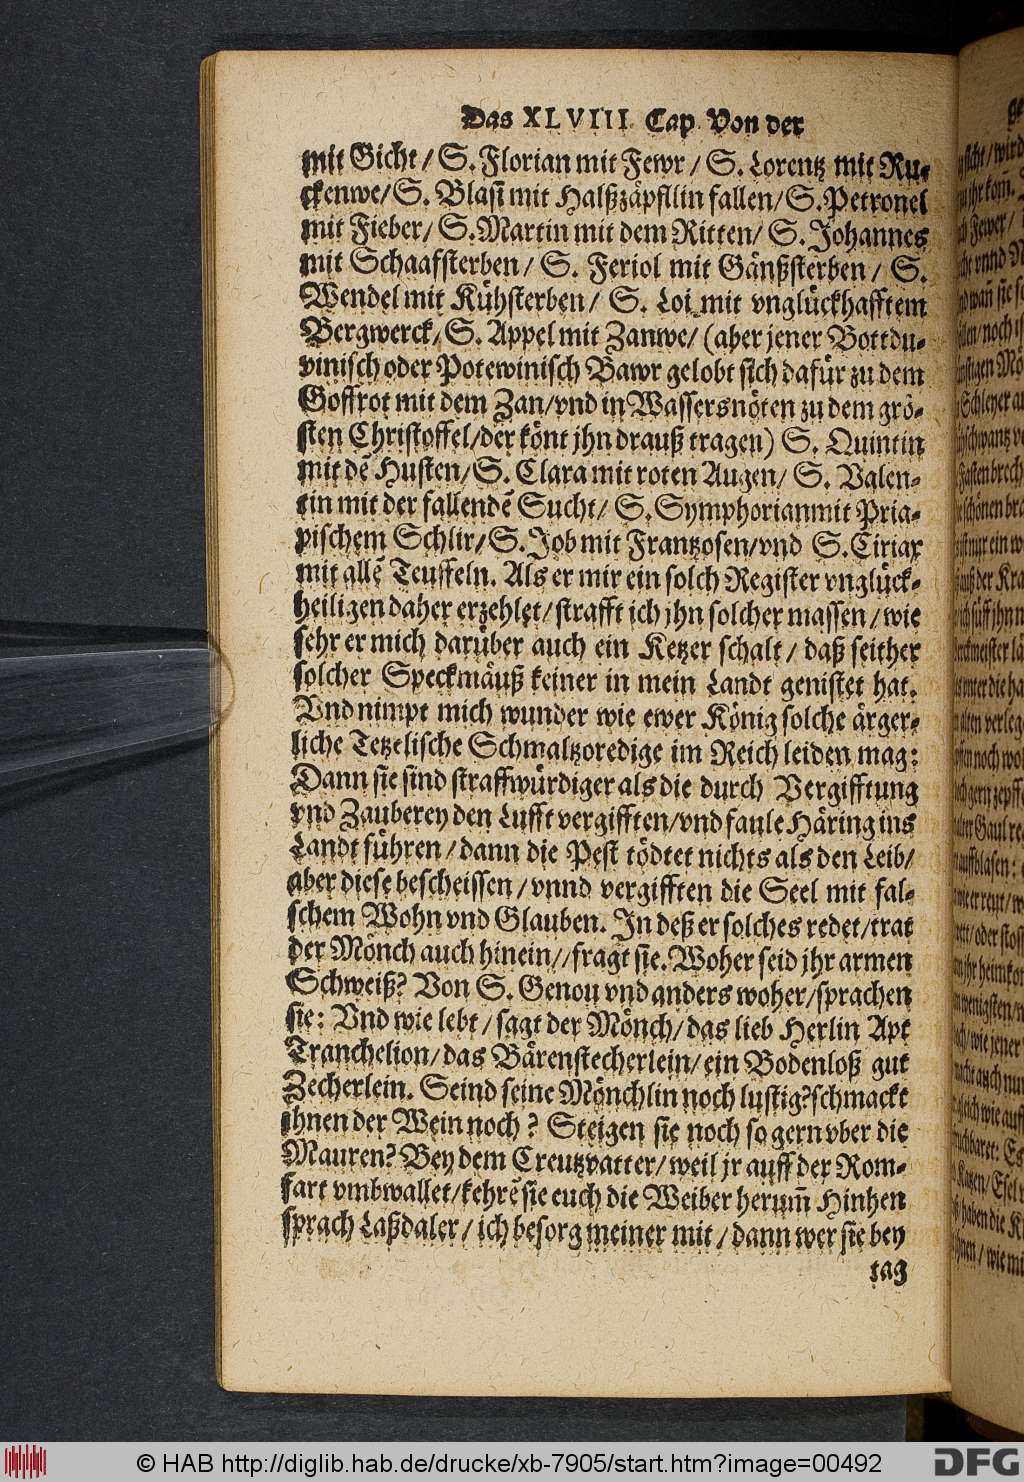 Das XLVIII Cap. Von der
mit Gicht / S. Florian mit Fewr / S. Lorentz mit Ru-
ckenwe / S. Blasi mit Halßzäpfllin fallen / S. Petronel
mit Fieber / S. Martin mit dem Ritten / S. Johannes
mit Schaafsterben / S. Feriol mit Gänßsterben / S.
Wendel mit Kühsterben / S. Loi mit vnglückhafftem
Bergwerck / S. Appel mit Zanwe / (aber jener Bottdu-
vinisch oder Potewinisch Bawr gelobt sich dafür zu dem
Goffrot mit dem Zan / vnd in Wassersnöten zu dem grö-
sten Christoffel / der könt jhn drauß tragen) S. Quintin
mit dẽ Husten / S. Clara mit roten Augen / S. Valen-
tin mit der fallendẽ Sucht / S. Symphorian mit Pria-
pischem Schlir / S. Job mit Frantzosen / vnd S. Ciriax
mit allẽ Teuffeln. Als er mir ein solch Register vnglück-
heiligen daher erzehlet / strafft ich jhn solcher massen / wie
sehr er mich darüber auch ein Ketzer schalt / daß seither
solcher Speckmäuß keiner in mein Landt genistet hat.
Vnd nimpt mich wunder wie ewer König solche ärger-
liche Tetzelische Schmaltzoredige im Reich leiden mag:
Dann sie sind straffwürdiger als die durch Vergifftung
vnd Zauberey den Lufft vergifften / vnd faule Häring ins
Landt führen / dann die Pest tödtet nichts als den Leib /
aber diese bescheissen / vnnd vergifften die Seel mit fal-
schem Wohn vnd Glauben. In deß er solches redet / trat
der Mönch auch hinein // fragt sie. Woher seid jhr armen
Schweiß? Von S. Genou vnd anders woher / sprachen
sie: Vnd wie lebt / sagt der Mönch / das lieb Herlin Apt
Tranchelion / das Bärenstecherlein / ein Bodenloß gut
Zecherlein. Seind seine Mönchlin noch lustig? schmackt
ihnen der Wein noch? Steigen sie noch so gern vber die
Mauren? Bey dem Creutzvatter / weil jr auff der Rom-
fart vmbwallet / kehrẽ sie euch die Weiber herum̃ Hinhen
sprach Laßdaler / ich besorg meiner mit / dann wer sie bey
tag
© HAB http://diglib.hab.de/drucke/xb-7905/start.htm?image=00492
DFG